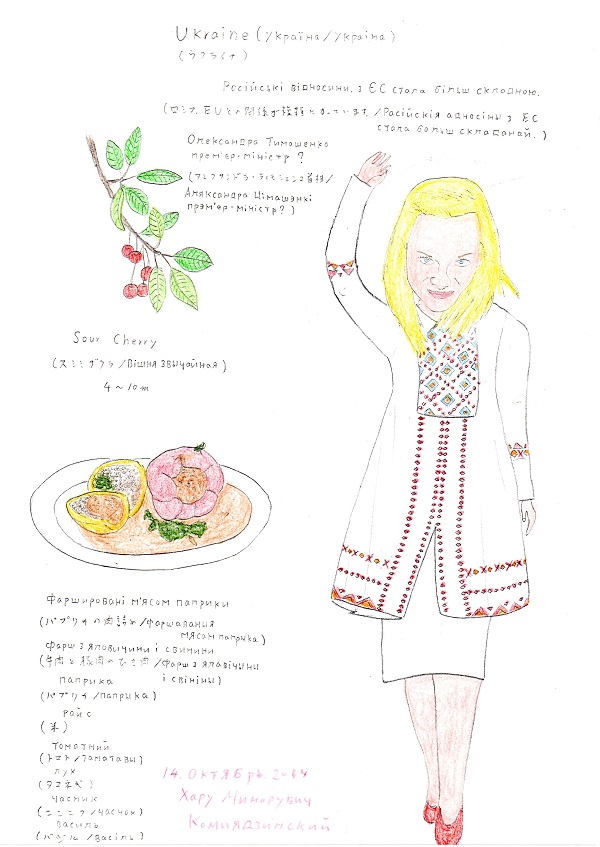 Ukraine (Україна/Украіна)
(ウクライナ)
Російські відносини. з ЄС стала більш складною.
(ロシア、EUとの関係が複雑となっています。/Расійскія адносіны з ЕС
стала больш складанай.)
Олександра Тимошенко
прем'ер-міністр?
(アレクサンドラ・ティモシェンコ首相/
Аляксандра Цімашэнкі
прэм'ер-міністр?)
Sour Cherry
(スミミザクラ/Вішня звычайная)
4~10m
Фаршировані м'ясом паприки
(パプリカの肉詰め/Фаршавания
мясам папрыка)
Фарш з яловичини і свинини
(牛肉と豚肉のひき肉/Фарш з ялавічыны
паприка і свініны)
(パプリカ/папрыка)
Райс
(米)
Томатний
(トマト/Таматавы)
Лук
(タマネギ)
Часник
(ニンニク/часнок)
Василь
(バジル/Васіль)
14. Октябрь 2014
Хару Минорубич
Комиядзинский